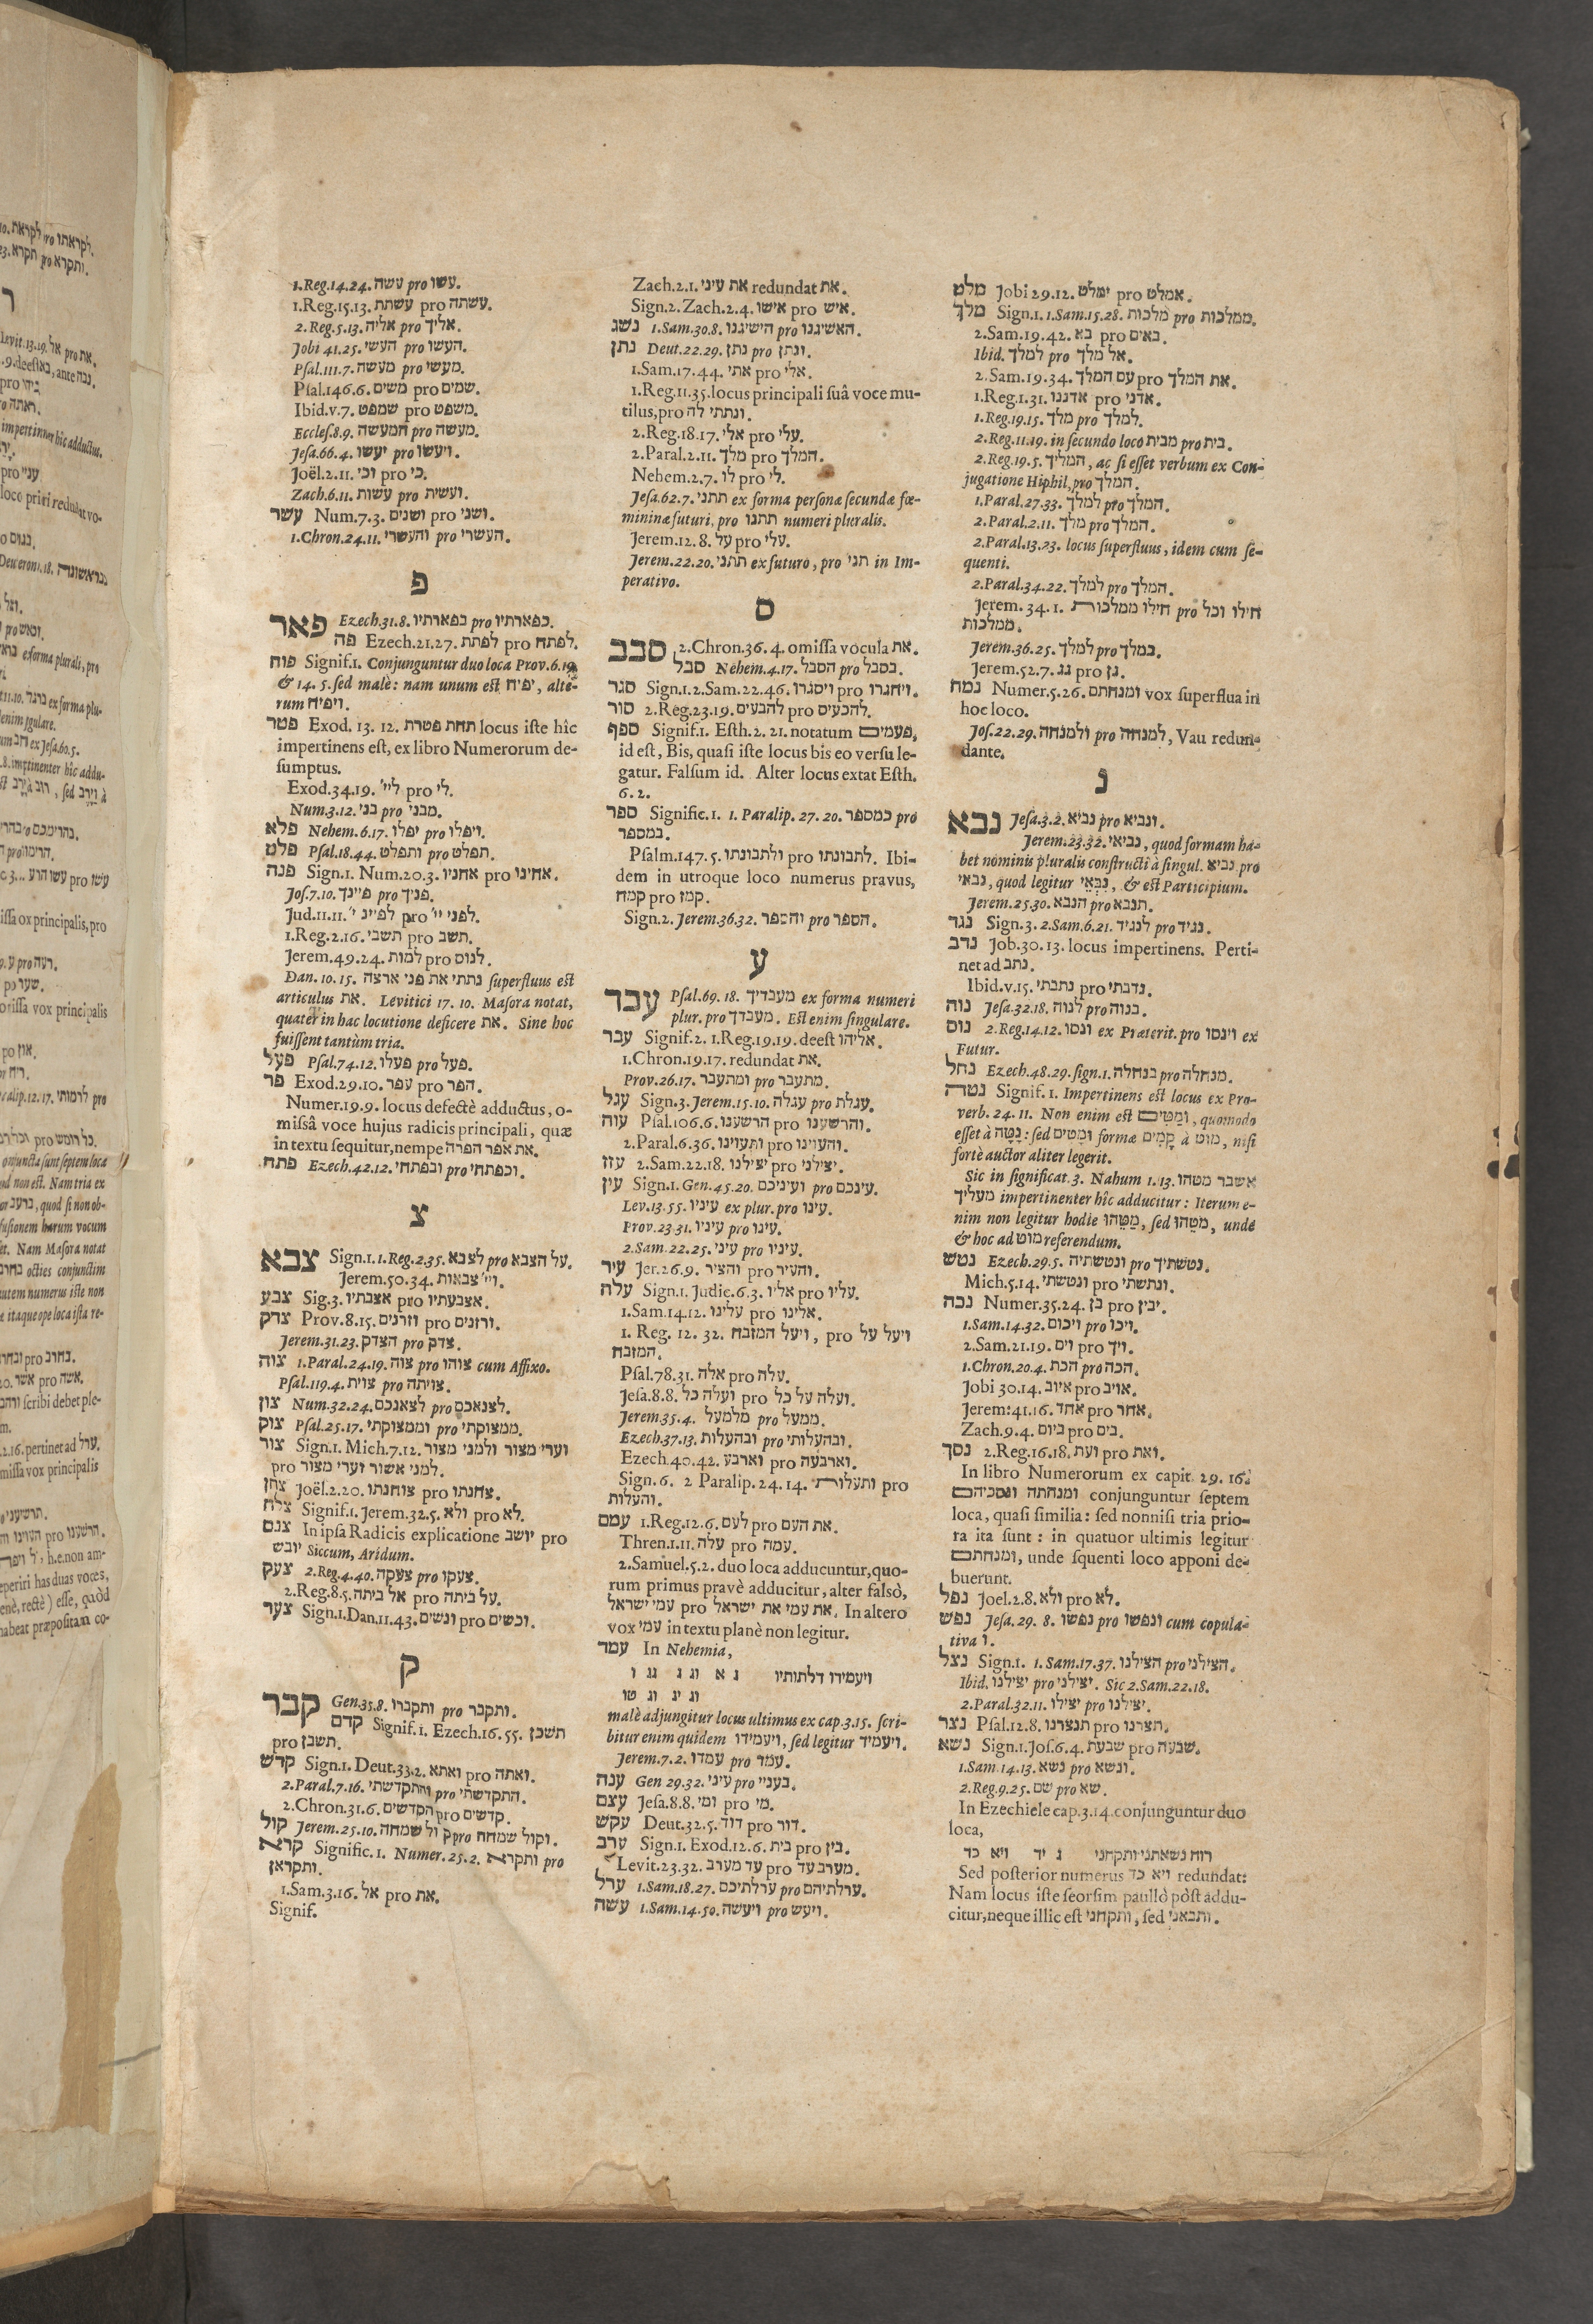 מלט Jobi 29.12. ימלט pro אמלט.
מלך Sign.1. 1.Sam.15.28. מלכות pro ממלכות.
2.Sam.19.42. בא pro באים.
Ibid. למלך pro אל מלך.
2.Sam.19.34. עם המלך pro את המלך.
1.Reg.1.31. אדננו pro אדני.
1.Reg.19.15. מלך pro למלך.
2.Reg.11.19. in secundo loco מבית pro בית.
2.Reg.19.5. המליך, ac si esset verbum ex Con-
jugatione Hiphil, pro המלך.
1.Paral.27.33. למלך pro המלך.
2.Paral.2.11. מלך pro המלך.
2.Paral.13.23. locus superfluus, idem cum se-
quenti.
2.Paral.34.22. למלך pro המלך.
Jerem.34.1. חילו ממלכות pro חילו וכל
ממלכות.
Jerem.36.25. למלך pro במלך.
Jerem.52.7. גג pro גן.
נמח Numer.5.26. ומנחתם vox superflua in
hoc loco.
Jos.22.29. ולמנחה pro למנחה, Vau redun-
dante.
נ
נבא Jesa.3.2. נביא pro ונביא.
Jerem.23.32. נביאי, quod formam ha-
bet nominis pluralis constructi à singul. נביא pro
נבאי, quod legitur נִבְּאֵי, & est Participium.
Jerem.25.30. הנבא pro תנבא.
נגד Sign.3. 2.Sam.6.21. לנגיד pro נגיד.
נדב Job.30.13. locus impertinens. Perti-
net ad נתב.
Ibid.v.15. נתבתי pro נדבתי.
נוה Jesa.32.18. לנוה pro בנוה.
נוס 2.Reg.14.12. ונסו ex Præterit. pro וינסו ex
Futur.
נחל Ezech.48.29. sign.1. בנחלה pro מנחלה.
נטה Signif.1. Impertinens est locus ex Pro-
verb.24.11. Non enim est וּמַטִּים, quomodo
esset à נָטָה: sed וּמָטִים formæ קָמִים à מוט, nisi
fortè auctor aliter legerit.
Sic in significat.3. Nahum 1.13. אשבר מטהו
מעליך impertinenter hîc adducitur: Iterum e-
nim non legitur hodie מַטֵּהוּ, sed מֹטֵהוּ, unde
& hoc ad מוט referendum.
נטש Ezech.29.5. ונטשתיה pro נטשתיך.
Mich.5.14. ונטשתי pro ונתשתי.
נכה Numer.35.24. בן pro יבין.
1.Sam.14.32. ויכום pro ויכו.
2.Sam.21.19. וים pro ויך.
1.Chron.20.4. הכת pro הכה.
Jobi 30.14. איוב pro אויב.
Jerem:41.16. אחד pro אחר.
Zach.9.4. ביום pro בים.
נסך 2.Reg.16.18. ועת pro ואת.
In libro Numerorum ex capit. 29.16.
ומנחתה ונסכיהם conjunguntur septem
loca, quasi similia: sed nonnisi tria prio-
ra ita sunt: in quatuor ultimis legitur
ומנחתם, unde squenti loco apponi de-
buerunt.
נפל Joel.2.8. ולא pro לא.
נפש Jesa.29.8. נפשו pro ונפשו cum copula-
tiva ו.
נצל Sign.1. 1.Sam.17.37. הצילנו pro הצילני.
Ibid. יצילנו pro יצילני. Sic 2.Sam.22.18.
2.Paral.32.11. יצילו pro יצילנו.
נצר Psal.12.8. תנצרנו pro תצרנו.
נשא Sign.1. Jos.6.4. שבעת pro שבעה.
1.Sam.14.13. נשא pro ונשא.
2.Reg.9.25. שם pro שא.
In Ezechiele cap.3.14. conjunguntur duo
loca,
רוח נשאתני ותקחני ג יד ויא כד
Sed posterior numerus ויא כד redundat:
Nam locus iste seorsim paullò pòst addu-
citur, neque illic est ותקחני, sed ותבאני.
Zach.2.1. את עיני redundat את.
Sign.2. Zach.2.4. אישו pro איש.
נשג 1.Sam.30.8. הישיגנו pro האשיגנו.
נתן Deut.22.29. נתן pro ונתן.
1.Sam.17.44. אתי pro אלי.
1.Reg.11.35. locus principali suâ voce mu-
tilus, pro ונתתי לה.
2.Reg.18.17. אלי pro עלי.
2.Paral.2.11. מלך pro המלך.
Nehem.2.7. לו pro לי.
Jesa.62.7. תתני ex forma personæ secundæ fœ-
mininæ futuri, pro תתנו numeri pluralis.
Jerem.12.8. על pro עלי.
Jerem.22.20. תתני ex futuro, pro תני in Im-
perativo.
ס
סבב 2.Chron.36.4. omissa vocula את.
סבל Nehem.4.17. הסבל pro בסבל.
סגר Sign.1. 2.Sam.22.46. ויסגרו pro ויחגרו.
סור 2.Reg.23.19. להבעים pro להכעים.
ספף Signif.1. Esth.2.21. notatum פעמים,
id est, Bis, quasi iste locus bis eo versu le-
gatur. Falsum id. Alter locus extat Esth.
6.2.
ספר Signific.1. 1.Paralip.27.20. כמספר pro
במספר.
Psalm.147.5. ולתבונתו pro לתבונתו. Ibi-
dem in utroque loco numerus pravus,
קמח pro קמז.
Sign.2. Jerem.36.32. והספר pro הספר.
ע
עבר Psal.69.18. מעבדיך ex forma numeri
plur. pro מעבדך. Est enim singulare.
עבר Signif.2. 1.Reg.19.19. deest אליהו.
1.Chron.19.17. redundat את.
Prov.26.17. ומתעבר pro מתעבר.
עגל Sign.3. Jerem.15.10. עגלה pro עגלת.
עוה Psal.106.6. הרשענו pro והרשענו.
2.Paral.6.36. ותעוינו pro והעוינו.
עזז 2.Sam.22.18. יצילנו pro יצילני.
עין Sign.1. Gen.45.20. ועיניכם pro עינכם.
Lev.13.55. עיניו ex plur. pro עינו.
Prov.23.31. עיניו pro עינו.
2.Sam.22.25. עיני pro עיניו.
עיר Jer.26.9. והציר pro והעיר.
עלה Sign.1. Judic.6.3. אליו pro עליו.
1.Sam.14.12. עלינו pro אלינו.
1.Reg.12.32. ויעל המזבח, pro ויעל על
המזבח.
Psal.78.31. אלה pro עלה.
Jesa.8.8. ועלה כל pro ועלה על כל.
Jerem.35.4. מלמעל pro ממעל.
Ezech.37.13. ובהעלות pro ובהעלותי.
Ezech.40.42. וארבע pro וארבעה.
Sign.6. 2 Paralip.24.14. ותעלות pro
והעלות.
עמם 1.Reg.12.6. לעם pro את העם.
Thren.1.11. עלה pro עמה.
2.Samuel.5.2. duo loca adducuntur, quo-
rum primus pravè adducitur, alter falsò,
עמי ישראל pro את עמי את ישראל. In altero
vox עמי in textu planè non legitur.
עמד In Nehemia,
ויעמידו דלתותיו ג א וג ג גג ו
וג יג וג טו
malè adjungitur locus ultimus ex cap.3.15. scri-
bitur enim quidem ויעמידו, sed legitur ויעמיד.
Jerem.7.2. עמדו pro עמד.
ענה Gen 29.32. עיני pro בעניי.
עצם Jesa.8.8. ומי pro מי.
עקש Deut.32.5. דוד pro דור.
ערב Sign.1. Exod.12.6. בית pro בין.
Levit.23.32. עד מערב pro מערב עד.
ערל 1.Sam.18.27. ערלתיכם pro ערלתיהם.
עשה 1.Sam.14.50. ויעשה pro ויעש.
1.Reg.14.24. עשה pro עשו.
1.Reg.15.13. עשתת pro עשתה.
2.Reg.5.13. אליה pro אליך.
Jobi 41.25. העשי pro העשו.
Psal.111.7. מעשה pro מעשי.
Psal.146.6. משים pro שמים.
Ibid.v.7. שמפט pro משפט.
Eccles.8.9. המעשה pro מעשה.
Jesa.66.4. יעשו pro ויעשו.
Joël.2.11. וכי pro כי.
Zach.6.11. עשות pro ועשית.
עשר Num.7.3. ושנים pro ושני.
1.Chron.24.11. והעשרי pro העשרי.
פ
פאר Ezech.31.8. בפארתיו pro כפארתיו.
פה Ezech.21.27. לפתת pro לפתח.
פוח Signif.1. Conjunguntur duo loca Prov.6.19.
& 14.5. sed malè: nam unum est יפיח, alte-
rum ויפיח.
פטר Exod.13.12. תחת פטרת locus iste hîc
impertinens est, ex libro Numerorum de-
sumptus.
Exod.34.19. ליי׳ pro לי.
Num.3.12. בני pro מבני.
פלא Nehem.6.17. יפלו pro ויפלו.
פלט Psal.18.44. ותפלט pro תפלט.
פנה Sign.1. Num.20.3. אחניו pro אחינו.
Jos.7.10. פיינך pro פניך.
Jud.11.11. לפייני י׳ pro לפני יי׳.
1.Reg.2.16. תשבי pro תשב.
Jerem.49.24. למות pro לנוס.
Dan.10.15. נתתי את פני ארצה superfluus est
articulus את. Levitici 17.10. Masora notat,
quater in hac locutione deficere את. Sine hoc
fuissent tantùm tria.
פעל Psal.74.12. פעלו pro פעל.
פר Exod.29.10. עפר pro הפר.
Numer.19.9. locus defectè adductus, o-
missâ voce hujus radicis principali, quæ
in textu sequitur, nempe את אפר הפרה.
פתח Ezech.42.12. ובפתחי pro וכפתחי.
צ
צבא Sign.1. 1.Reg.2.35. לצבא pro על הצבא.
Jerem.50.34. ויי׳ צבאות.
צבע Sig.3. אצבתיו pro אצבעתיו.
צדק Prov.8.15. וזרנים pro ורזנים.
Jerem.31.23. הצדק pro צדק.
צוה 1.Paral.24.19. צוה pro צוהו cum Affixo.
Psal.119.4. צוית pro צויתה.
צון Num.32.24. לצאנכם pro לצנאכם.
צוק Psal.25.17. וממצוקתי pro ממצוקתי.
צור Sign.1. Mich.7.12. וערי מצור ולמני מצור
pro למני אשור וערי מצור.
צחן Joël.2.20. צוחנתו pro צחנתו.
צלח Signif.1. Jerem.32.5. ולא pro לא.
צנם In ipsa Radicis explicatione יושב pro
יובש Siccum, Aridum.
צעק 2.Reg.4.40. צעקה pro צעקו.
2.Reg.8.5. אל ביתה pro על ביתה.
צער Sign.1. Dan.11.43. ונשים pro וכשים.
ק
קבר Gen.35.8. ותקברו pro ותקבר.
קדם Signif.1. Ezech.16.55. תשכן
pro תשבן.
קדש Sign.1. Deut.33.2. ואתא pro ואתה.
2.Paral.7.16. והתקדשתי pro התקדשתי.
2.Chron.31.6. הקדשים pro קדשים.
קול Jerem.25.10. ול שמחה pro וקול שמחה.
קרא Signific.1. Numer.25.2. ותקרא pro
ותקראן.
1.Sam.3.16. אל pro את.
Signif.